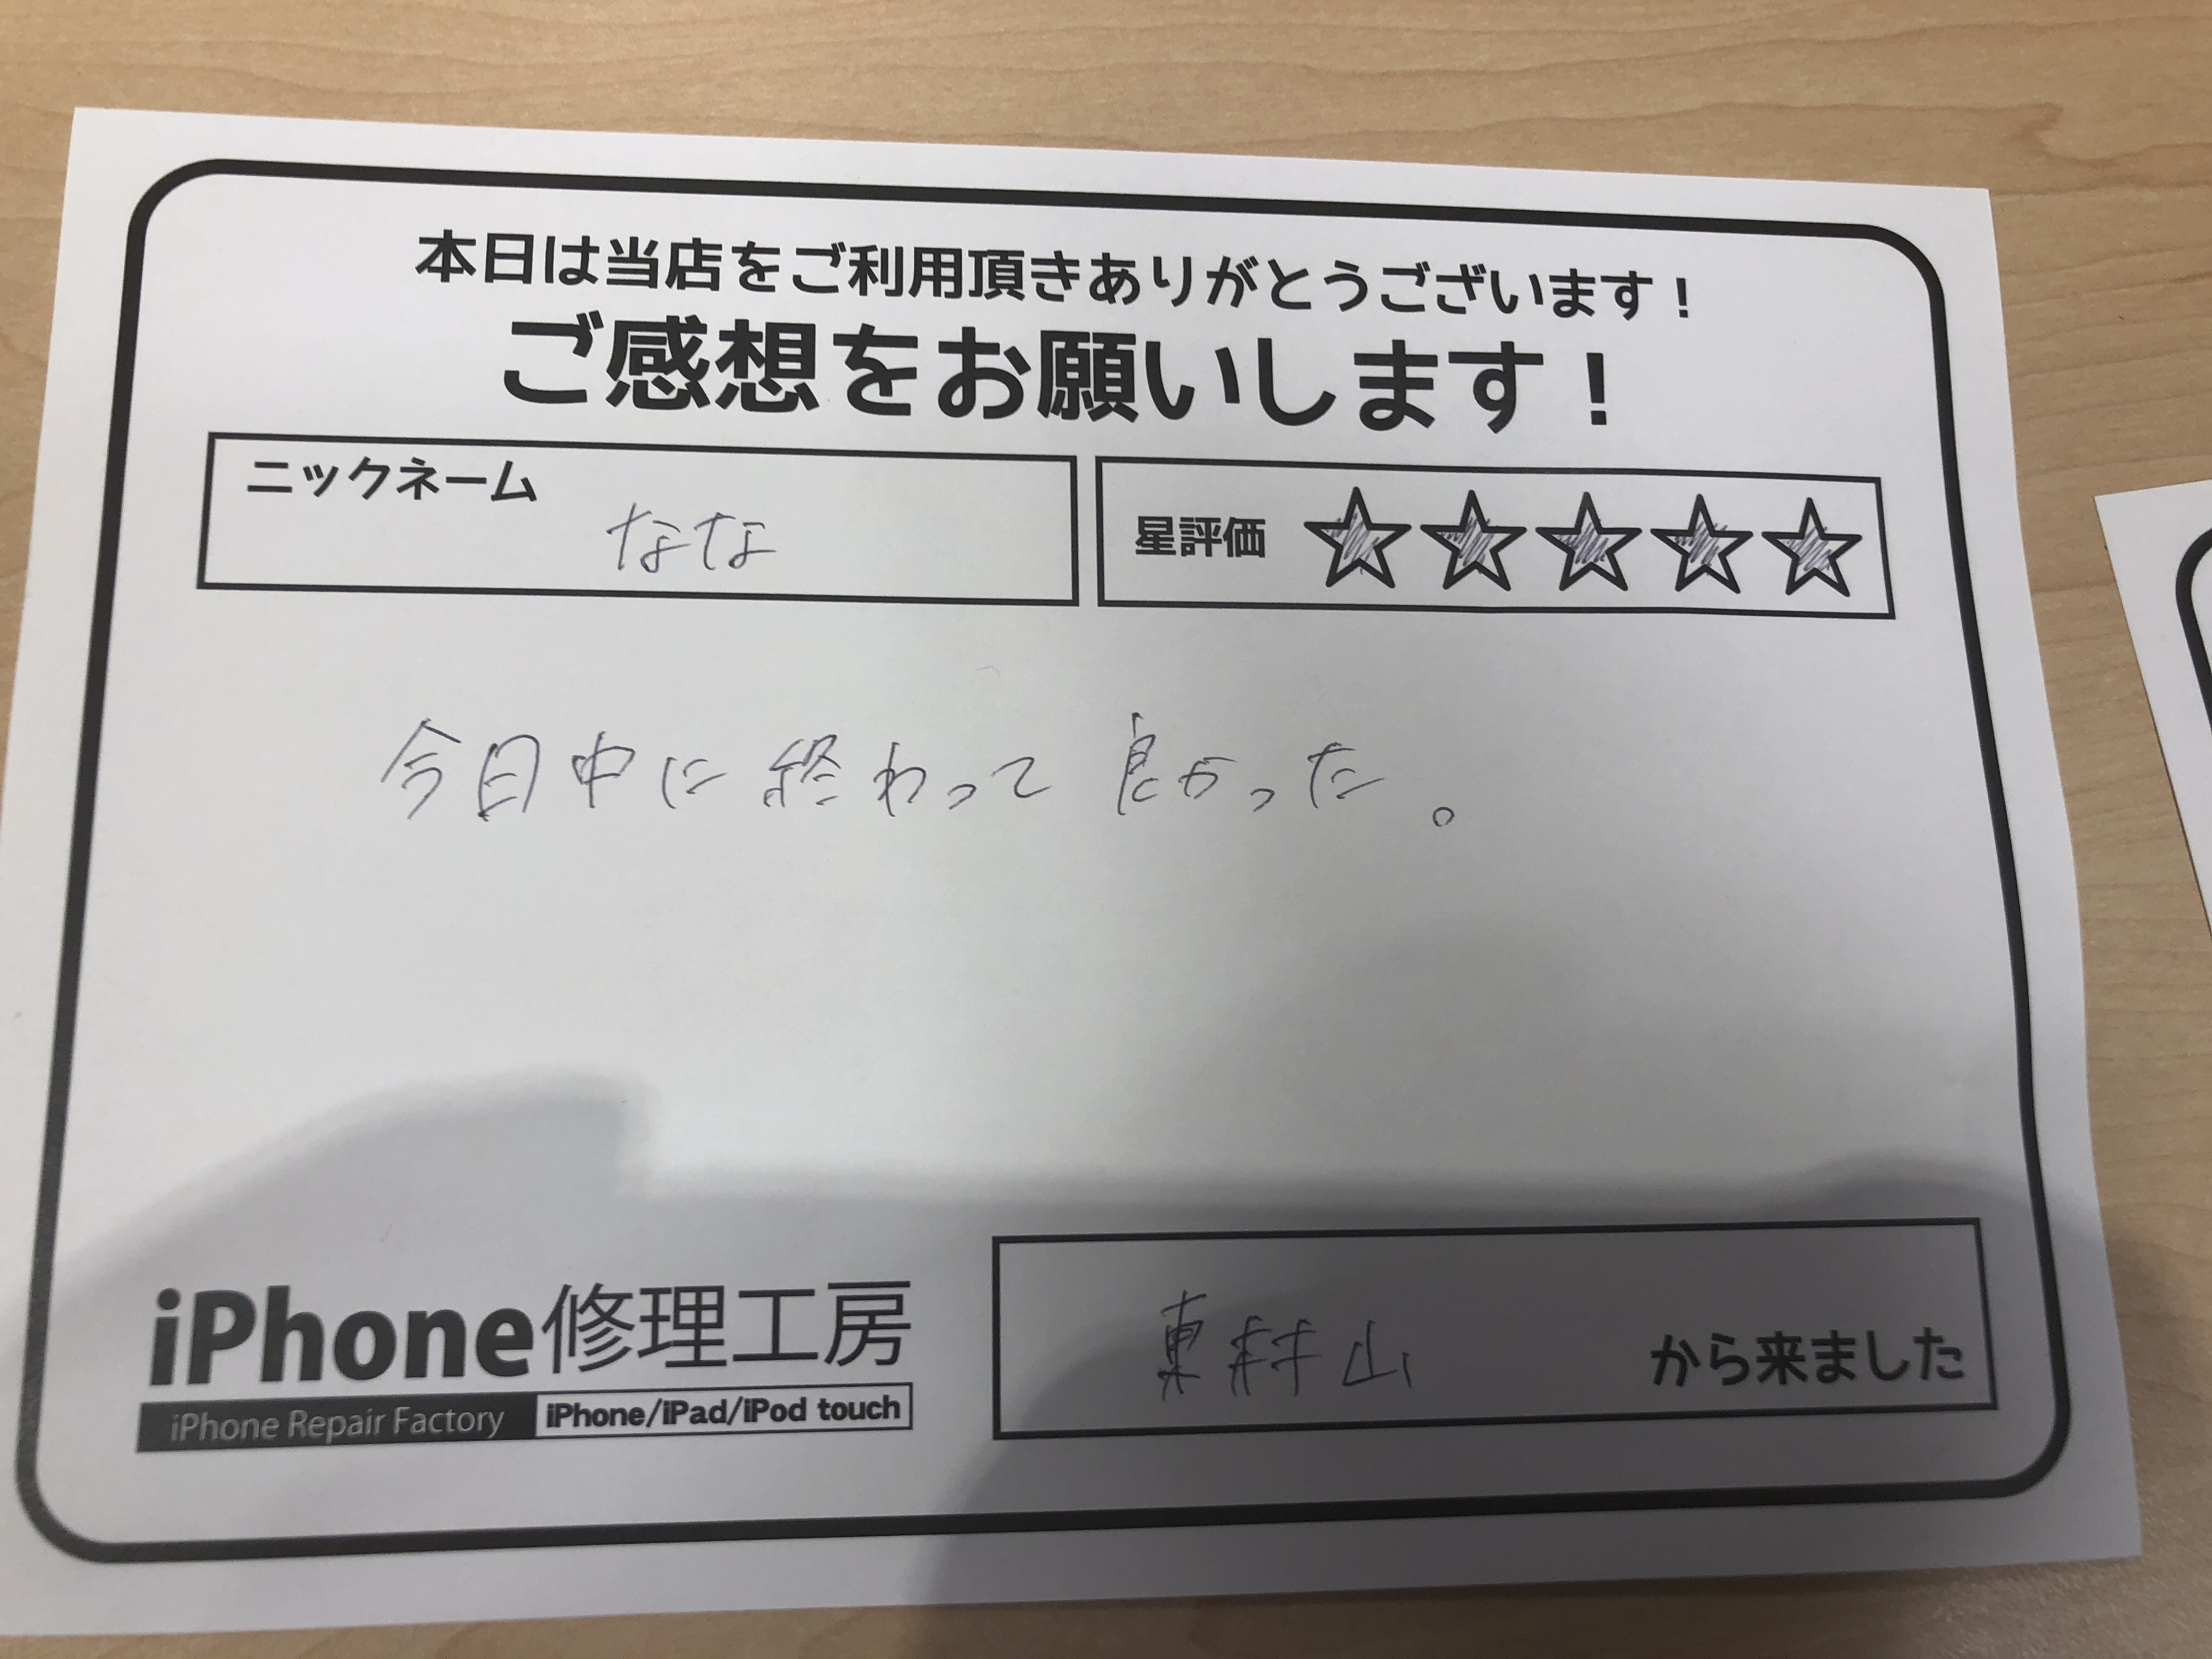 本日は当店をご利用頂きありがとうございます！
ご感想をお願いします！
ニックネーム
なな
星評価 ☆☆☆☆☆
今日中に終わって良かった。
iPhone修理工房
iPhone Repair Factory iPhone/iPad/iPod touch
東村山 から来ました